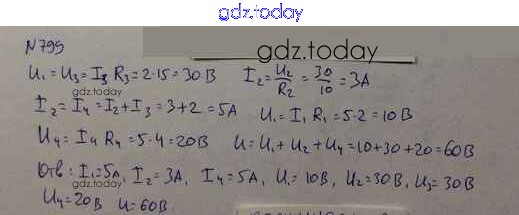 gdz.today
N799
gdz.today
U₁=U₃=I₃ R₃=2·15=30В I₂=U₂/R₂=30/10=3А
gdz.today
I₂=I₄=I₂+I₃=3+2=5А U₁=I₁R₁=5·2=10В
U₄=I₄ R₄=5·4=20В U=U₁+U₂+U₄=10+30+20=60В
Отв: I₁=5А, I₂=3А, I₄=5А, U₁=10В, U₂=30В, U₃=30В
gdz.today
U₄=20В U=60В